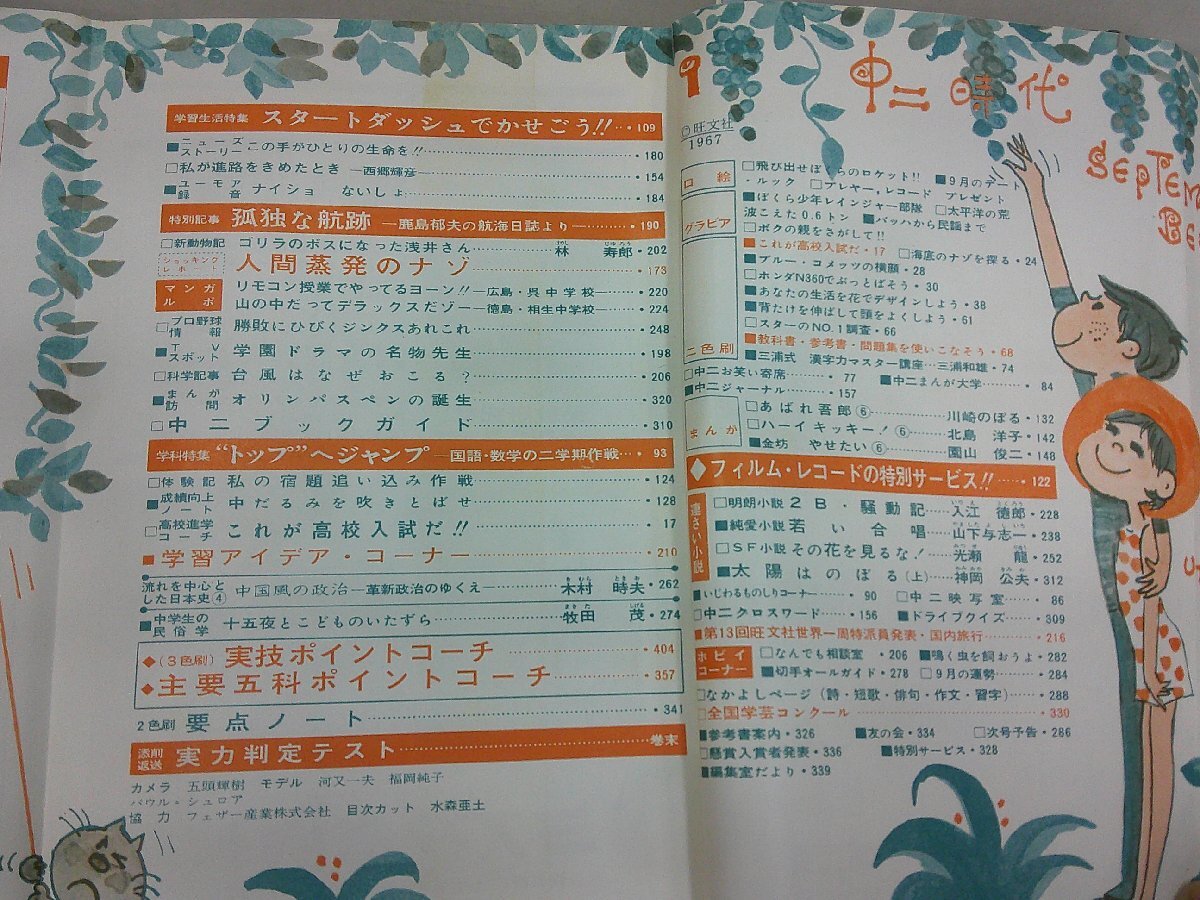 学習生活特集 スタートダッシュでかせごう!!…•109
■ニューズストーリー この手がひとりの生命を!!•180
□私が進路をきめたとき—西郷輝彦—•154
■ユーモア録音 ナイショ ないしょ•184
特別記事 孤独な航跡—鹿島郁夫の航海日誌より—•190
□新動物記 ゴリラのボスになった浅井さん 林 寿郎•202
ショッキングレポート 人間蒸発のナゾ•173
マンガルポ リモコン授業でやってるヨーン!!—広島・呉中学校—•220
山の中だってデラックスだゾー—徳島・相生中学校—•224
□プロ野球情報 勝敗にひびくジンクスあれこれ•248
■TVスポット 学園ドラマの名物先生•198
□科学記事 台風はなぜおこる?•206
■まんが訪問 オリンパスペンの誕生•320
□中二ブックガイド•310
学科特集 “トップ”へジャンプ—国語・数学の二学期作戦…•93
□体験記 私の宿題追い込み作戦•124
■成績向上ノート 中だるみを吹きとばせ•128
□高校進学コーチ これが高校入試だ!!•17
■学習アイデア・コーナー•210
流れを中心とした日本史④ 中国風の政治—革新政治のゆくえ— 木村 時夫•262
■中学生の民俗学 十五夜とこどものいたずら 牧田 茂•274
◆(3色刷)実技ポイントコーチ•404
◆主要五科ポイントコーチ•357
2色刷 要点ノート•341
添削返送 実力判定テスト 巻末
カメラ 五頭輝樹 モデル 河又一夫 福岡純子
パウル・シュロア
協力 フェザー産業株式会社 目次カット 水森亜土
9 中二時代
SEPTEMBER
©旺文社
1967
口絵
□飛び出せぼくらのロケット!! ■9月のデート
・ルック □プレヤー,レコード プレゼント
グラビア
■ぼくら少年レインジャー部隊 □太平洋の荒
波こえた0.6トン ■バッハから民謡まで
□ボクの親をさがして!!
■これが高校入試だ•17 □海底のナゾを探る•24
■ブルー・コメッツの横顔•28
□ホンダN360でぶっとばそう•30
■あなたの生活を花でデザインしよう•38
■背だけを伸ばして頭をよくしよう•61
□スターのNO.1調査•66
二色刷
■教科書・参考書・問題集を使いこなそう•68
■三浦式 漢字力マスター講座…三浦和雄•74
□中二お笑い寄席•77 ■中二まんが大学•84
■中二ジャーナル•157
まんが
□あばれ吾郎⑥ 川崎のぼる•132
□ハーイキッキー!⑥ 北島 洋子•142
■金坊 やせたい⑥ 園山 俊二•148
◆フィルム・レコードの特別サービス!!•122
連さい小説
□明朗小説 2B・騒動記 入江 徳郎•228
■純愛小説 若い合唱 山下与志一•238
□SF小説 その花を見るな! 光瀬 龍•252
■太陽はのぼる(上) 神岡 公夫•312
■いじわるものしりコーナー•90 □中二映写室•86
□中二クロスワード•156 ■ドライブクイズ•309
■第13回旺文社世界一周特派員発表・国内旅行•216
ホビイコーナー
□なんでも相談室•206 ■鳴く虫を飼おうよ•282
■切手オールガイド•278 □9月の運勢•284
□なかよしページ(詩・短歌・俳句・作文・習字)•288
□全国学芸コンクール•330
■参考書案内•326 ■友の会•334 □次号予告•286
□懸賞入賞者発表•336 ■特別サービス•328
■編集室だより•339